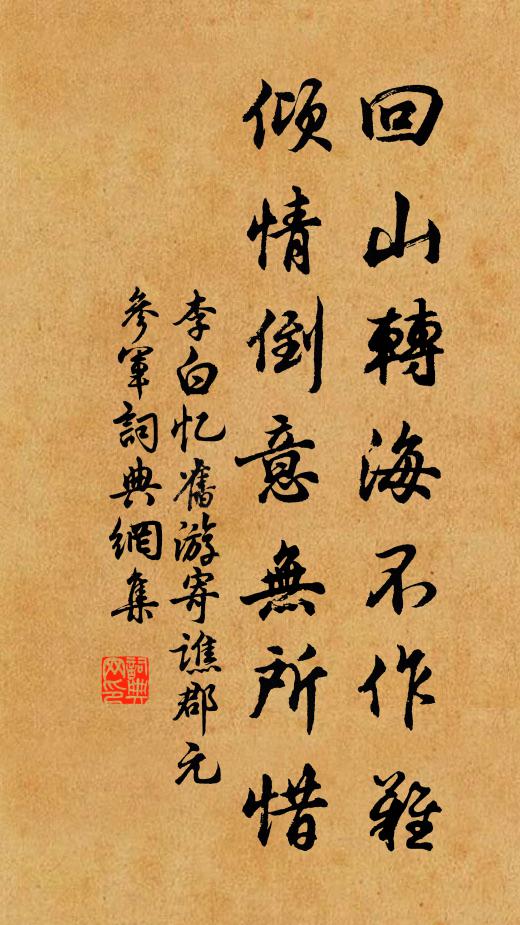 回山轉海不作難
傾情倒意無所惜
李白忆舊游寄譙郡元
參軍詞典網集
詞典网印